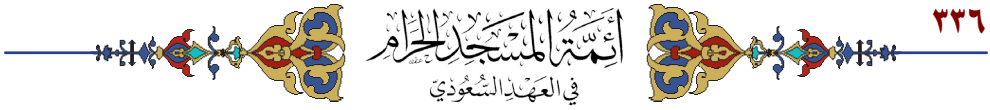 ٣٣٦
أَئِمَّةُ المَسْجِدِ الحَرَامِ
فِي العَهْدِ السُّعُودِيِّ